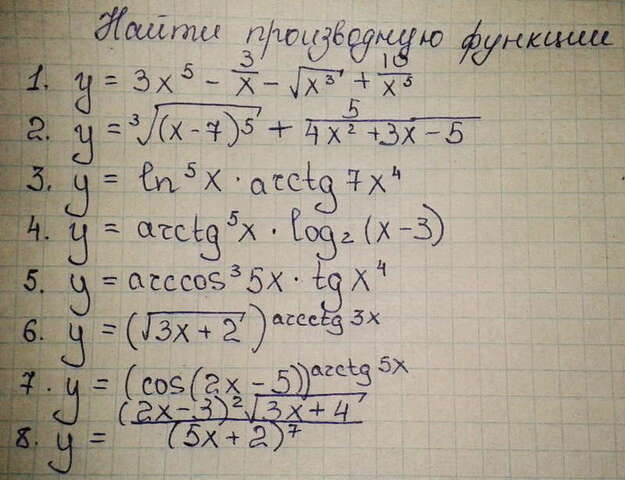 Найти производную функции
1. y = 3x⁵ - 3/x - √x³ + 10/x⁵
2. y = ³√(x-7)⁵ + 5/(4x² + 3x - 5)
3. y = ln⁵x · arctg 7x⁴
4. y = arctg⁵x · log₂(x-3)
5. y = arccos³5x · tg x⁴
6. y = (√3x+2)^arcctg 3x
7. y = (cos(2x-5))^arctg 5x
8. y = (2x-3)²√3x+4/(5x+2)⁷